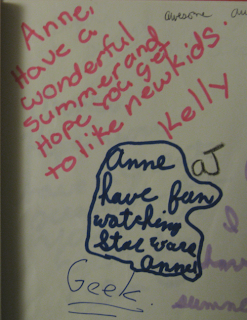 Awesome
Anne,
Have a
wonderful
summer and
Hope you get
to like new kids.
Kelly
Anne
have fun
watching
Star Wars
Anne
aJ
I
have
summer
Geek.